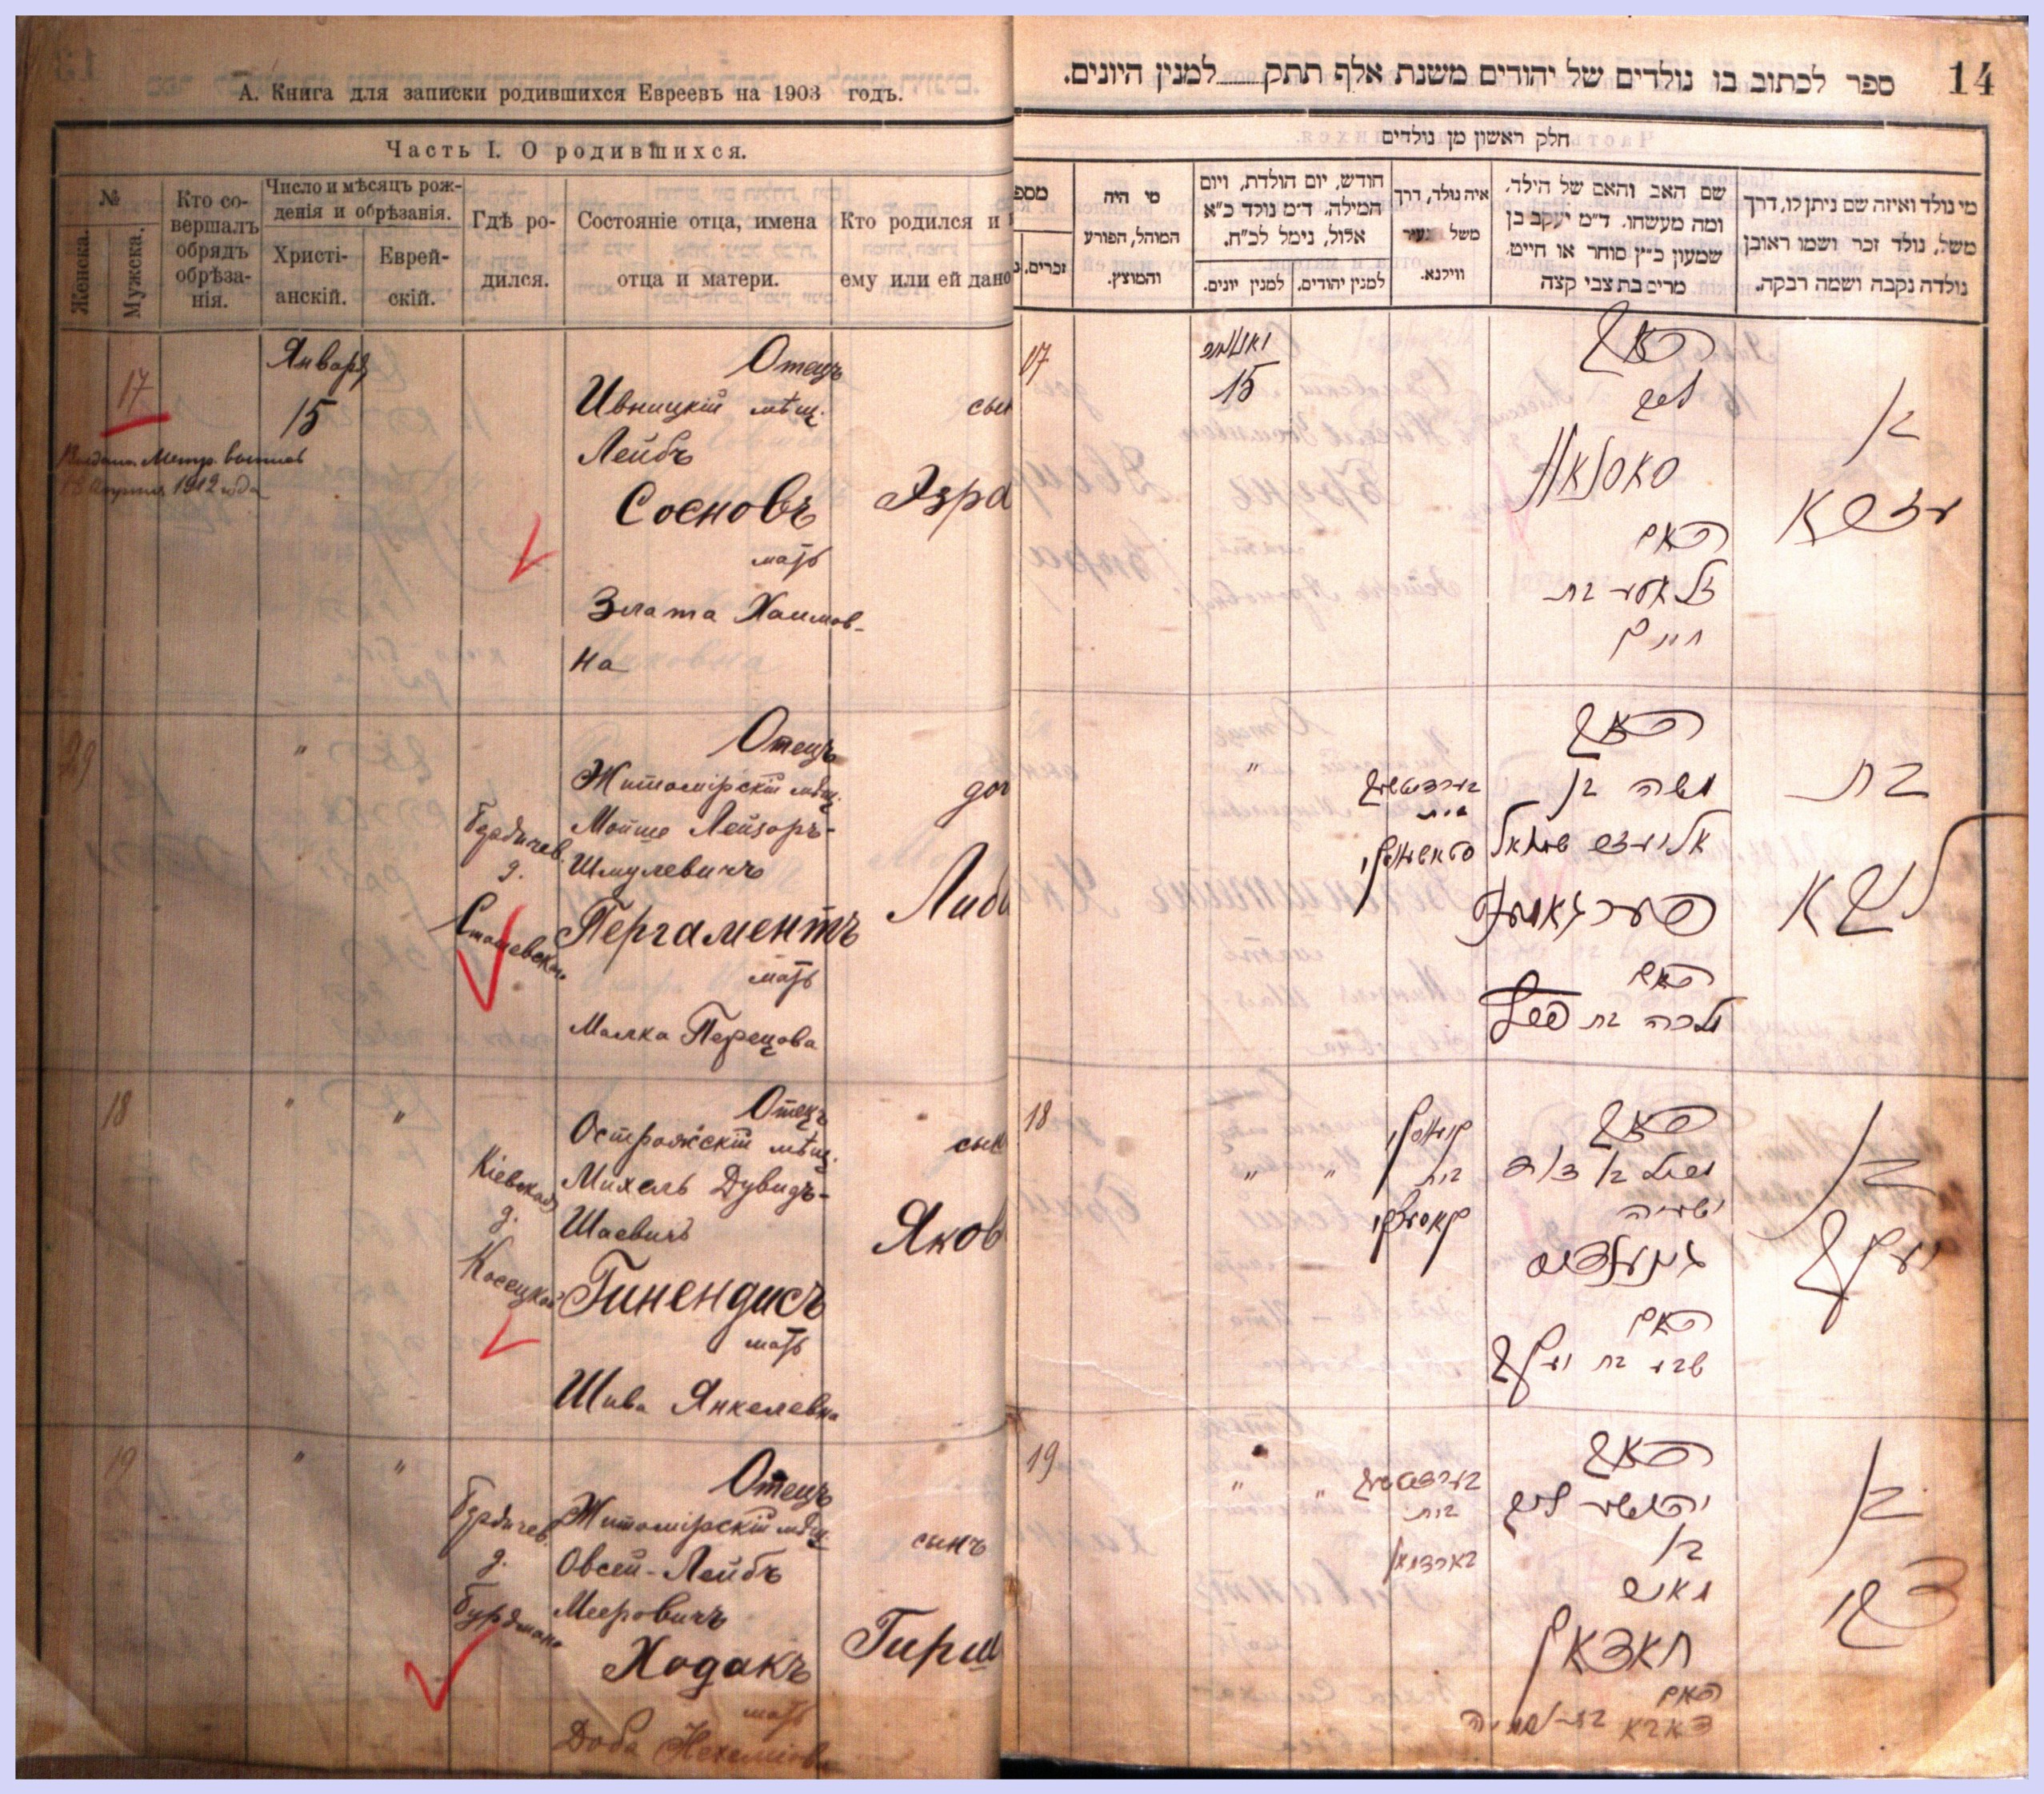 А. Книга для записки родившихся Евреевъ на 1903 годъ.
Часть I. О родившихся.
№
Женска.
Мужска.
Кто со-
вершалъ
обрядъ
обрѣза-
нія.
Число и мѣсяцъ рож-
денія и обрѣзанія.
Христі-
анскій.
Еврей-
скій.
Гдѣ ро-
дился.
Состояніе отца, имена
отца и матери.
Кто родился и
ему или ей дано
17
Январь
15
Метр.
1912 года
Отецъ
Ивницкій мѣщ.
Лейбъ
Сосновъ
мать
Злата Хаимов-
на
сын
Эзра
29
"
Бердичев.
д.
Отецъ
Житомірскій мѣщ.
Мойше Лейзоръ-
Шмулевичъ
Пергаментъ
мать
Малка Перецова
доч
Либа
18
" "
Кіевская
д.
Косецкой
Отецъ
Острожскій мѣщ.
Михель Дувидъ-
Шаевичъ
Гинендисъ
мать
Шива Янкелевна
сын
Яков
19
" "
Бердичев.
д.
Бурдмана
Отецъ
Житомірскій мѣщ.
Овсей-Лейбъ
Мееровичъ
Ходакъ
мать
Доба Нехеміовна
сынъ
Гирш
14
ספר לכתוב בו נולדים של יהודים משנת אלף תתק........למנין היונים.
חלק ראשון מן נולדים
מי נולד ואיזה שם ניתן לו, דרך
משל, נולד זכר ושמו ראובן
נולדה נקבה ושמה רבקה.
שם האב והאם של הילד,
ומה מעשהו. ד״מ יעקב בן
שמעון כ״ץ סוחר או חייט,
מרים בת צבי קצה
איה נולד, דרך
משל בעיר
ווילנא.
חודש, יום הולדת, ויום
המילה, ד״מ נולד כ״א
אלול, נימל לכ״ח.
למנין יהודים.
למנין יונים.
מי היה
המוהל, הפורע
והמוצץ.
מספ
זכרים.
17
יאנואר
15
האב
לייב
סאסנאוו
האם
זלאטע בת
חיים
בן
עזרא
"
בערדיטשעוו
בית
סטאשעווסקי
האב
משה בן
אליעזר שמואל
פערגאמענט
האם
מלכה בת פרץ
בת
ליבא
18
" "
קיעווסקי
בית
קאסעצקי
האב
מיכל בן דוד
ישעיה
גינענדיס
האם
שבע בת יעקב
בן
יעקב
19
" "
בערדיטשעוו
בית
בורדמאן
האב
יהושע לייב
בן
מאיר
חאדאק
האם
דאבא בת נחמיה
בן
צבי